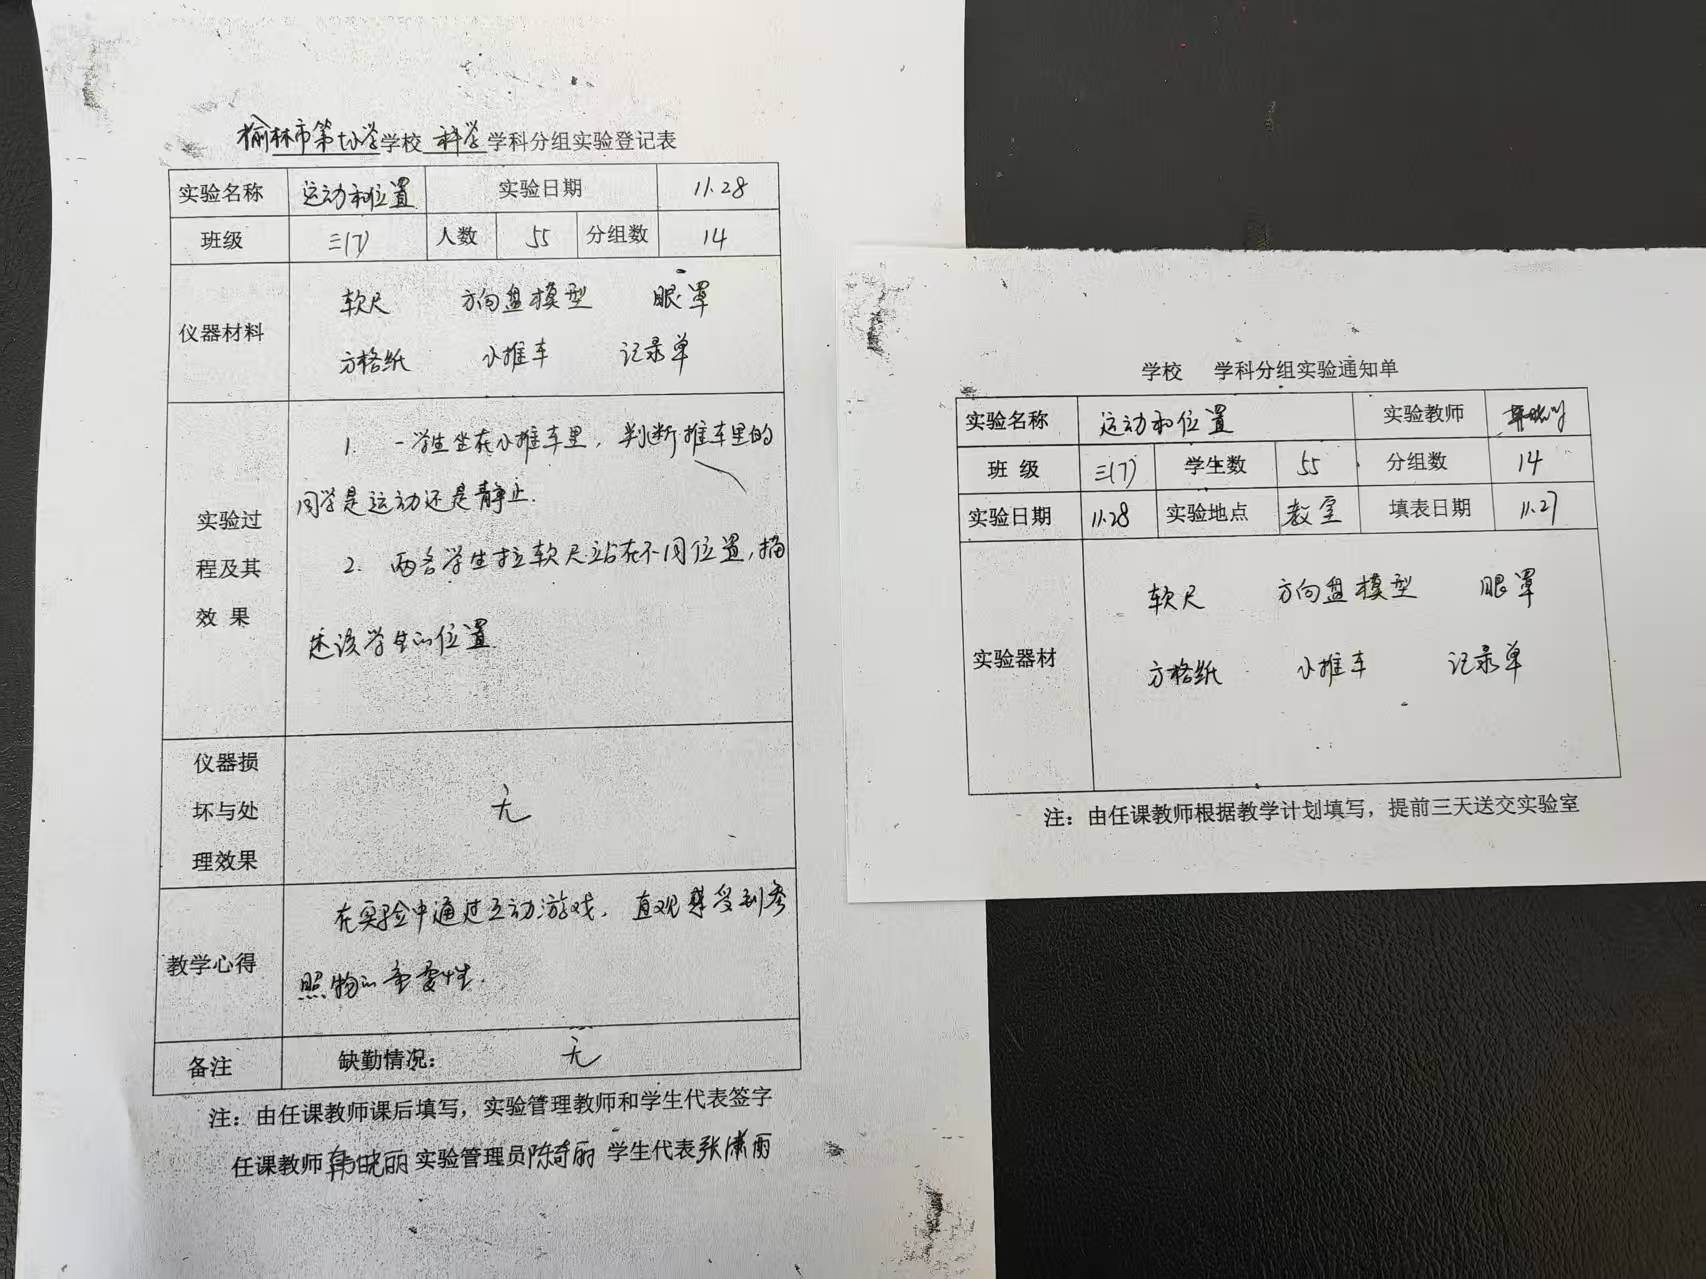 榆林市第十小学学校 科学 学科分组实验登记表
实验名称 运动和位置 实验日期 11.28
班级 三(7) 人数 55 分组数 14
仪器材料
软尺 方向盘模型 眼罩
方格纸 小推车 记录单
实验过程及其效果
1. 一学生坐在小推车里，判断推车里的
同学是运动还是静止.
2. 两名学生拉软尺站在不同位置，描
述该学生的位置.
仪器损坏与处理效果 无
教学心得
在实验中通过互动游戏，直观感受到参
照物的重要性.
备注 缺勤情况： 无
注：由任课教师课后填写，实验管理教师和学生代表签字
任课教师 韩晓丽 实验管理员 陈奇丽 学生代表 张潇丽
学校 学科分组实验通知单
实验名称 运动和位置 实验教师
班 级 三(7) 学生数 55 分组数 14
实验日期 11.28 实验地点 教室 填表日期 11.27
实验器材
软尺 方向盘模型 眼罩
方格纸 小推车 记录单
注：由任课教师根据教学计划填写，提前三天送交实验室